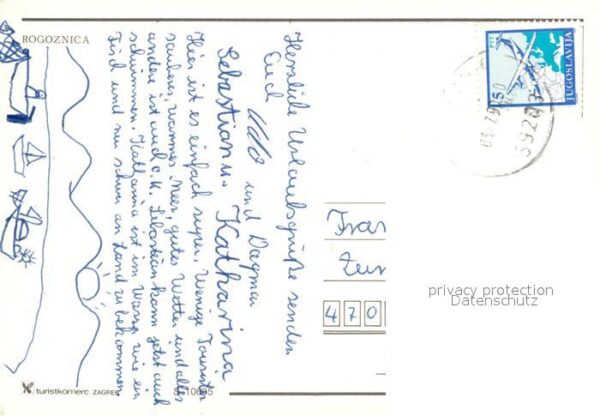 ROGOZNICA
Herzliche Urlaubsgrüße senden
Euch
Udo und Dagmar
Sebastian u. Katharina
Hier ist es einfach super. Wenige Touristen
sauberes, warmes Meer, gutes Wetter und alles
andere ist auch o.k. Sebastian kann jetzt auch
schwimmen. Katharina ist im Wasser wie ein
Fisch und nur schwer an Land zu bekommen
JUGOSLAVIJA
Fra
470
privacy protection
Datenschutz
turistkomerc ZAGREB